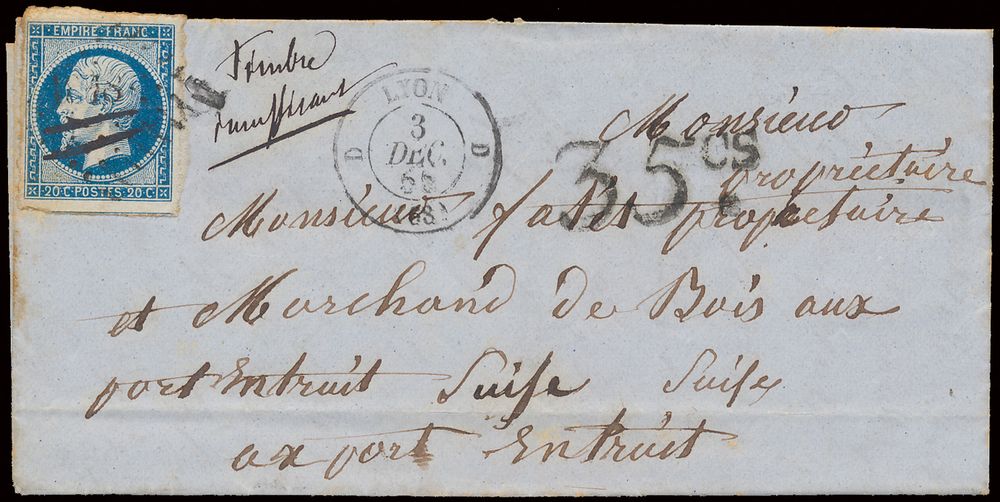 EMPIRE FRANC
20C POSTES 20C
Timbre
insuffisant
LYON
3
DEC.
(68)
D D
35 CS
Monsieur
propriétaire
Monsieur propriétaire
et Marchand de Bois aux
port Entruit Suise Suise
ax port Entruit